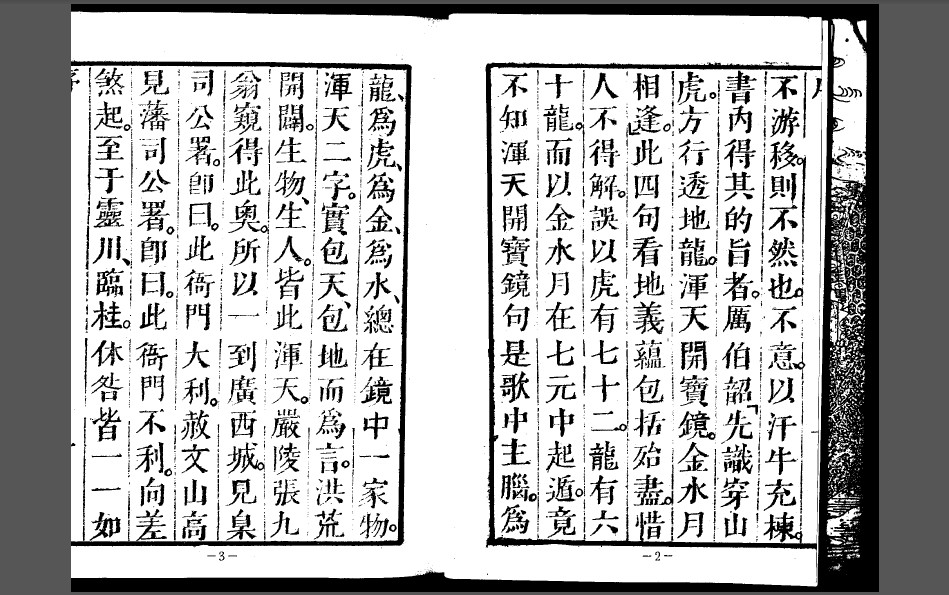 序
不游移。則不然也。不意。以汗牛充棟。
書內得其的旨者。厲伯韶「先識穿山
虎。方行透地龍。渾天開寶鏡。金水月
相逢」。此四句看地義蘊包括殆盡。惜
人不得解。誤以虎有七十二。龍有六
十龍。而以金水月在七元中起遁。竟
不知渾天開寶鏡句是歌中主腦。為
－2－
龍、為虎、為金、為水、總在鏡中一家物。
渾天二字。實包天、包地而為言。洪荒
開闢。生物、生人。皆此渾天。嚴陵張九
翁窺得此奧。所以一到廣西城。見臬
司公署。卽曰。此衙門大利。赦文山高
見藩司公署。卽曰。此衙門不利。向差
煞起。至于靈川、臨桂。休咎皆一一如
序
－3－